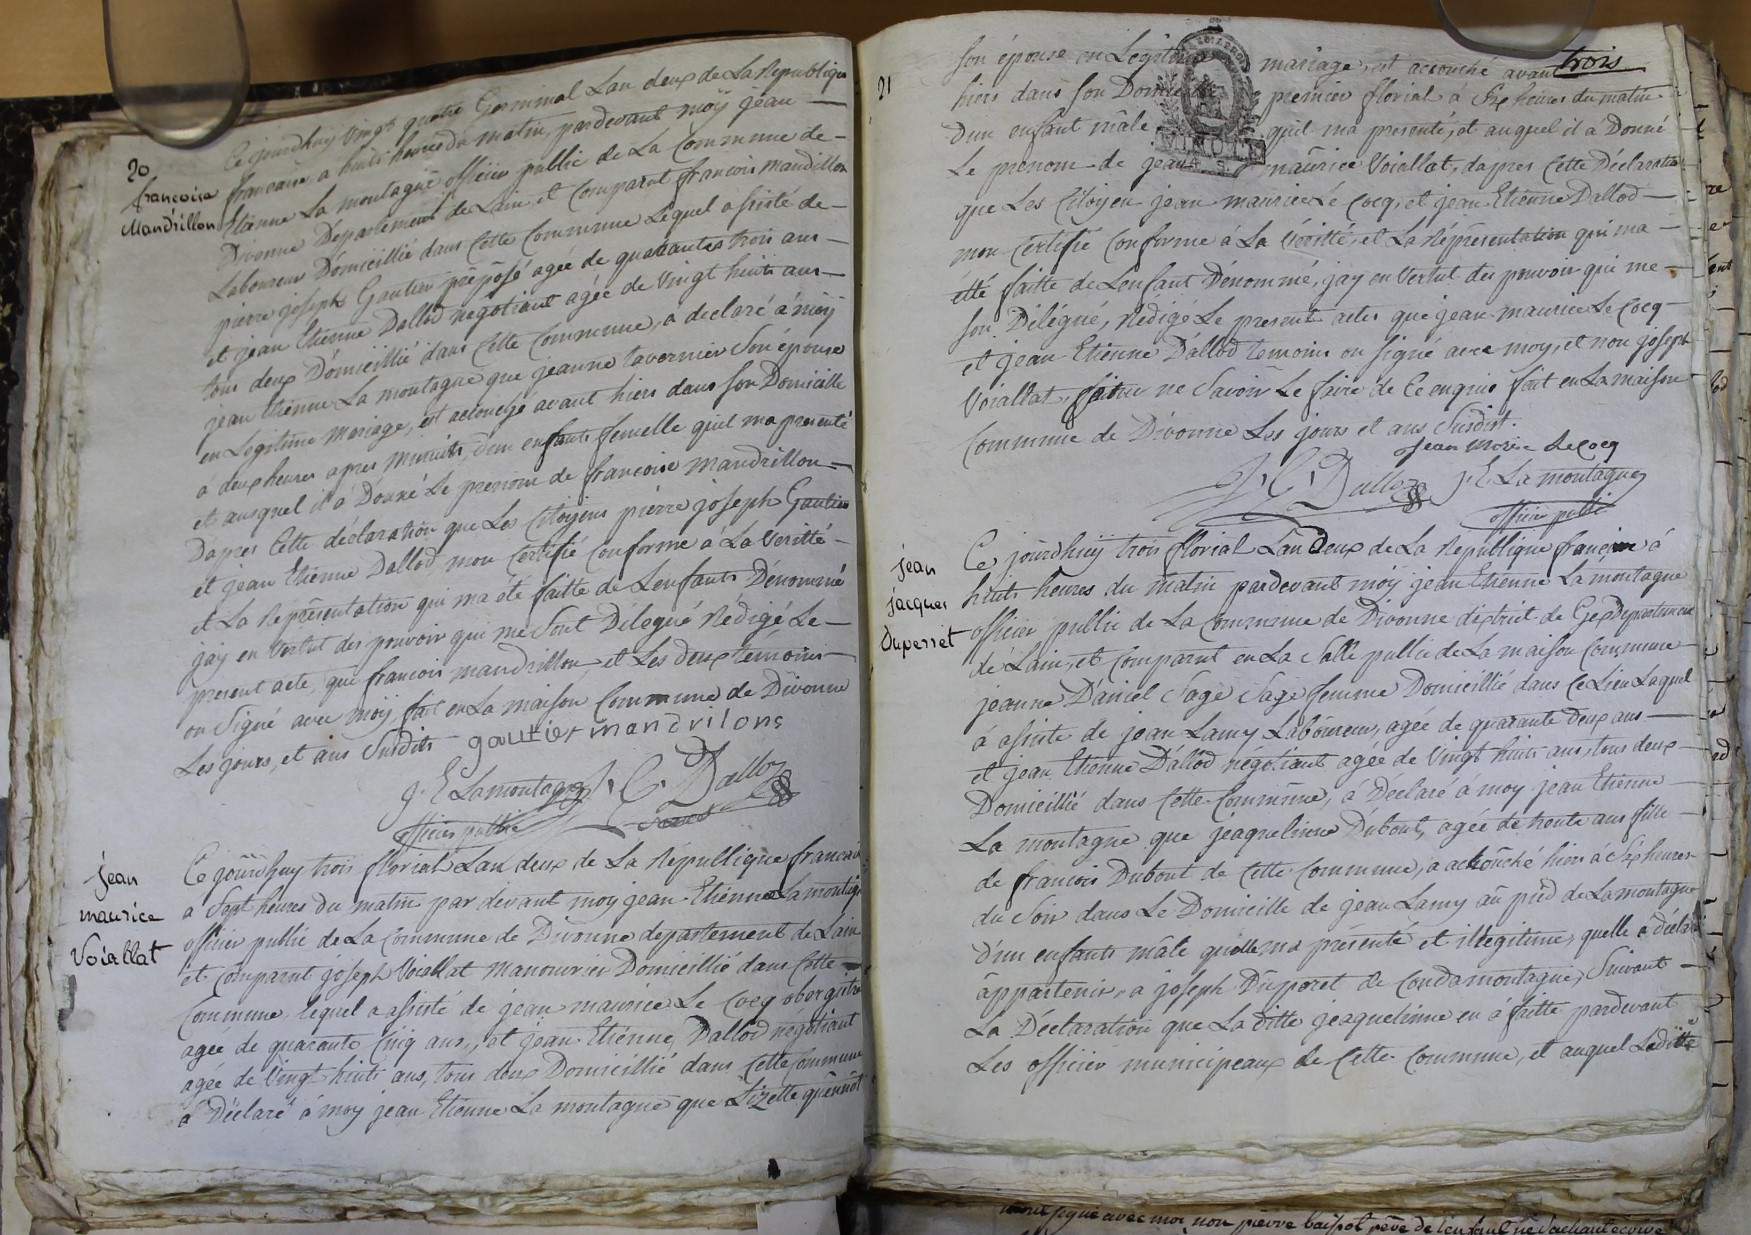 20
françoise
Mandrillon
Ce jourdhuy Vingt quatre Germinal Lan deux de La Republique
francaise, a huits heures du matin, pardevant moÿ jean
Etienne La montagne officier public de La Commune de
Divonne Département de Lain, et Comparut francois Mandrillon
Laboureur Domicillié dans Cette Commune Lequel assisté de
pierre joseph Gautier préposé agee de quarantes trois ans
et jean Etienne Dallod negotiant agée de Vingt huits ans
tous deux Domicillié dans Cette Commune, a declaré á moÿ
jean Etienne La montagne que jeanne tavernier Son épouse
en Legitime Mariage, est accouché avant hiers dans son Domicille
á deux heures apres minuits, d'un enfants femelle quil ma presenté
et auxquel il á Donné Le prénom de francoise Mandrillon
Dapres Cette déclaration que Les Citoyens pierre joseph Gautier
et jean Etienne Dallod mon Certifié Conforme á La Veritté
et La Representation qui ma été faitte de Lenfants Dénommé
jay en Vertut des pouvoir qui me Sont Délégué Rédigé Le
present acte, que francois mandrillon et Les deux temoins
on Signé avec moÿ fait en La maison Commune de Divonne
Les jours, et ans Susdits gautier mandrilons
J. E Lamontagne J. E. Dalloz
officier public
jean
maurice
Voiallat
Ce jourdhuy trois florial Lan deux de La République francaise
a Sept heures du matin par devant moy jean Etienne La montagne
officier public de La Commune de Divonne departement de Lain
et Comparut joseph Voiallat Manouvrier Domicillié dans Cette
Commune lequel a assisté de jean maurice Le Cocq
agée de quarante Cinq ans, et jean Etienne Dallod négotiant
agée de Vingt huits ans, tous deux Domicillié dans Cette Commune
á Déclaré á moy jean Etienne La montagne que Lizette
21
Son épouse en Legitime mariage, est accouché avant trois
hiers dans Son Domicille premier florial á Six heures du matin
Dun enfant mâle quil ma presenté, et auquel il a Donné
MINUTE
Le prenom de jean maurice Voiallat, dapres Cette Déclaration
que Les Citoyen jean maurice Le Cocq, et jean Etienne Dallod
mon Certifié Conforme á La Véritté, et La Représentation qui ma
été faitte de Lenfant Dénommé, jay en Vertut des pouvoir qui me
son Délégué, Rédigé Le present actes que jean maurice Le Cocq
et jean Etienne Dallod temoins on Signé avec moy, et non joseph
Voiallat, ne Savoir Le faire de Ce enquis fait en La maison
Commune de Divonne Les jours et ans Susdit.
jean Moric LeCocq
J. E. Dalloz J. E La montagne
officier public
jean
jacques
Duperret
Ce jourdhuy trois florial Lan deux de La Republique francaise á
huits heures du matin pardevant moÿ jean Etienne La montagne
officier public de La Commune de Divonne district de Gex Departement
de Lain, et Comparut en La Salle public de La maison Commune
jeanne Daniel Sage Sage femme Domicillié dans Ce Lieu Laquel
á assisté de jean Lamy Laboureur, agée de quarante deux ans
et jean Etienne Dallod négotiant agée de Vingt huits ans, tous deux
Domicillié dans Cette Commune, á Déclaré á moy jean Etienne
La montagne que jeaquelinne Dubout, agée de trente ans fille
de francois Dubout de Cette Commune, a accouché hiers á Six heures
du Soir dans Le Domicille de jean Lamy au pied de La montagne
d'un enfants mâle quelle ma présenté et illégitime, quelle a déclaré
appartenir, a joseph Duperet de Suivant
La Déclaration que La ditte jeaquelinne en á faitte pardevant
Les officier municipeaux de Cette Commune, et auquel Laditte
avec moi non pierre père de l'enfant ne sachant écrire